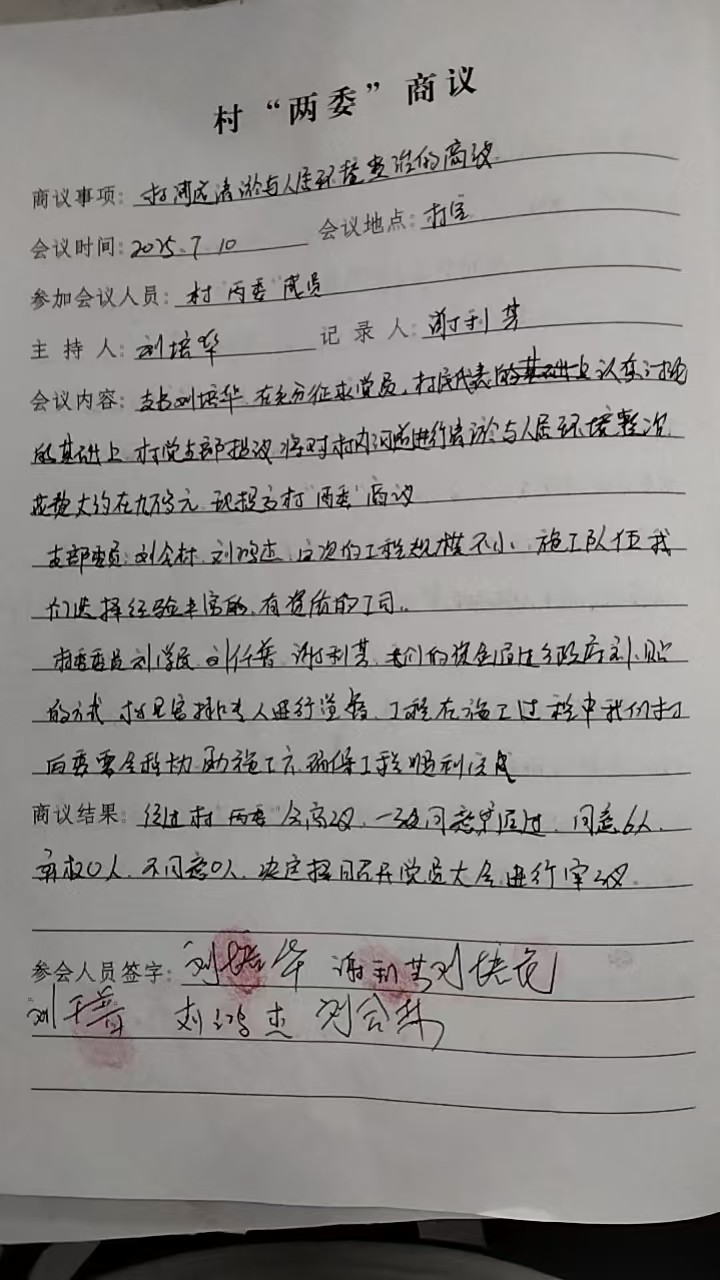 村“两委”商议
商议事项: 村河道清淤与人居环境整治的商议
会议时间: 2025.7.10 会议地点: 村室
参加会议人员: 村两委成员
主持人: 刘培华 记录人: 谢利芳
会议内容: 支书刘培华 在充分征求党员,村民代表的基础上认真讨论
的基础上 村党支部提议 将对村内河道进行清淤与人居环境整治
花费大约在九万元 现提交村“两委”商议
支部委员: 刘会林、刘鸿杰、这次的工程规模不小、施工队伍我
们选择经验丰富的,有资质的公司..
村委委员刘 刘仟普 谢利芳、我们的资金通过乡政府补贴
的方式 村里安排专人进行监督、工程在施工过程中我们村
两委要全程协助施工方确保工程顺利完成
商议结果: 经过村“两委”会商议,一致同意通过,同意6人,
弃权0人,不同意0人,决定择日召开党员大会进行审议.
参会人员签字: 刘培华 谢利芳
刘仟普 刘鸿杰 刘会林